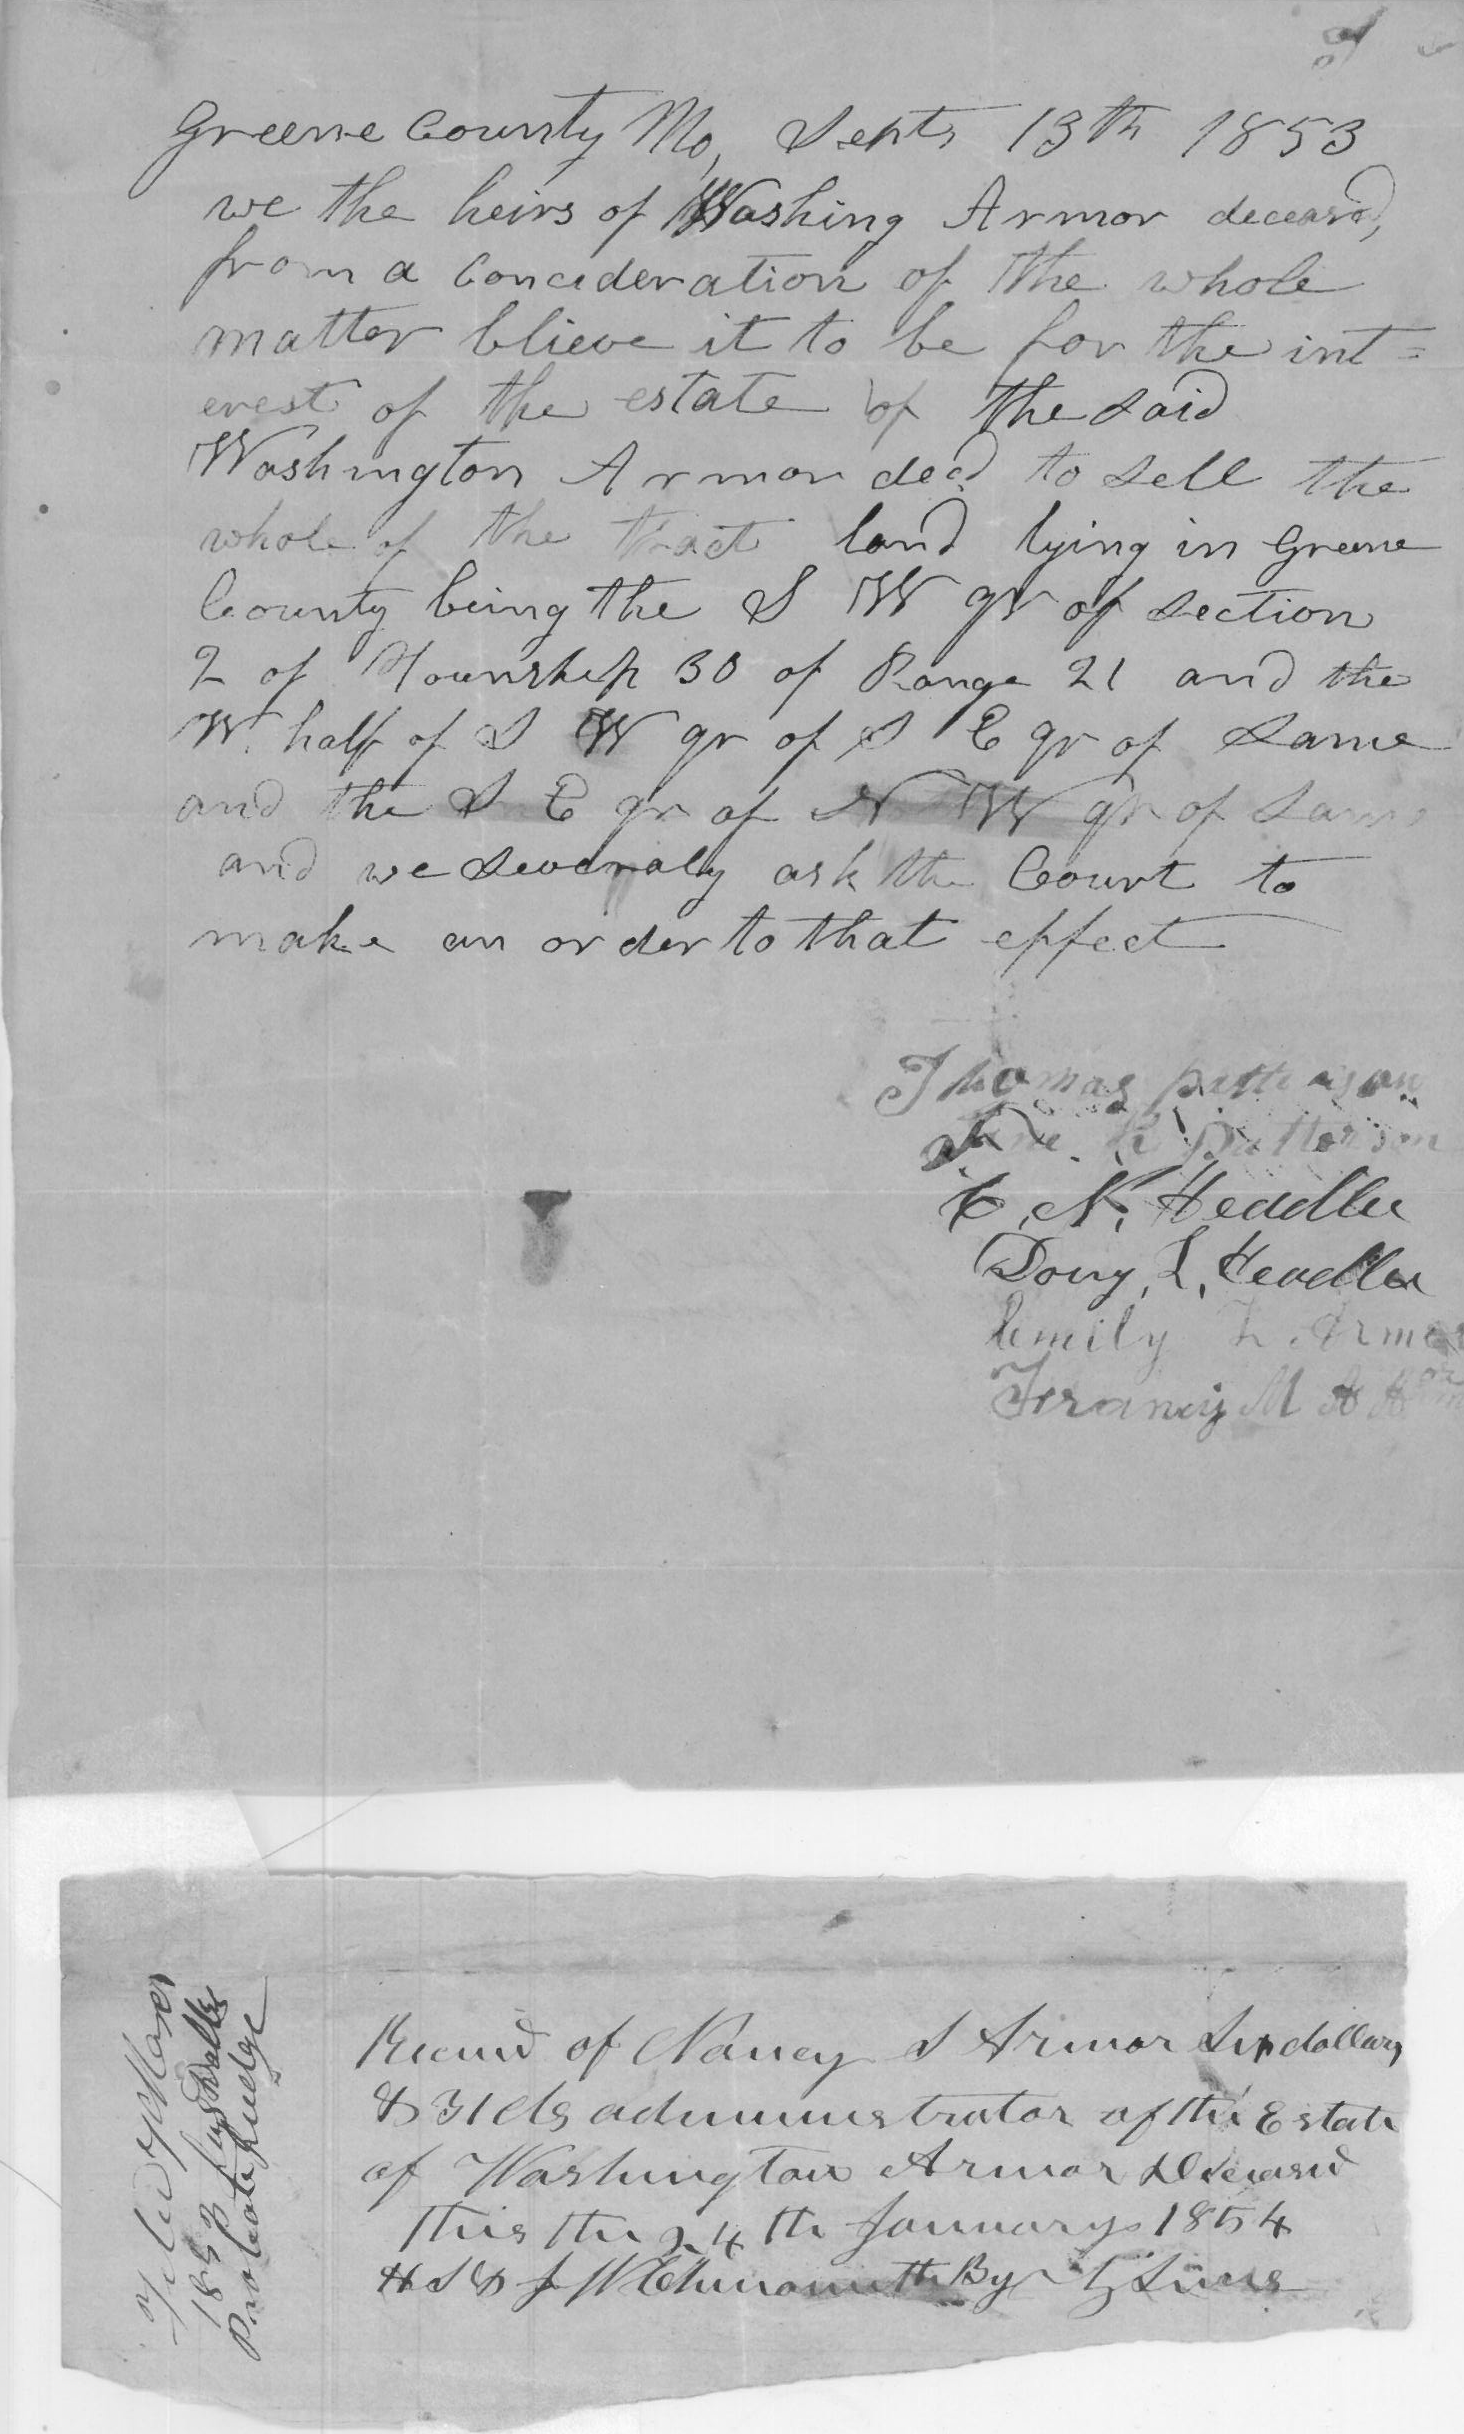 Greene County Mo, Septr 13th 1853
we the heirs of Washing Armor deceasd,
from a concideration of the whole
matter blieve it to be for the int =
erest of the estate of the said
Washington Armor decd to sell the
whole of the tract land lying in Greene
County being the S W qr of section
2 of Township 30 of Range 21 and the
W. half of S W qr of S E qr of Same
and the S E qr of N W qr of Same
and we severaly ask the Court to
make an order to that effect
Thomas patterson
Jane R Patterson
C. N. Headlee
E. L. Headlee
Emily L. Armor
M A Armor
Filed
1853
Probate Judge
Receivd of Nancy S Armor Six dollars
& 31 cts administrator of the Estate
of Washington Armor Deceasd
this the 24th January 1854
By Sims